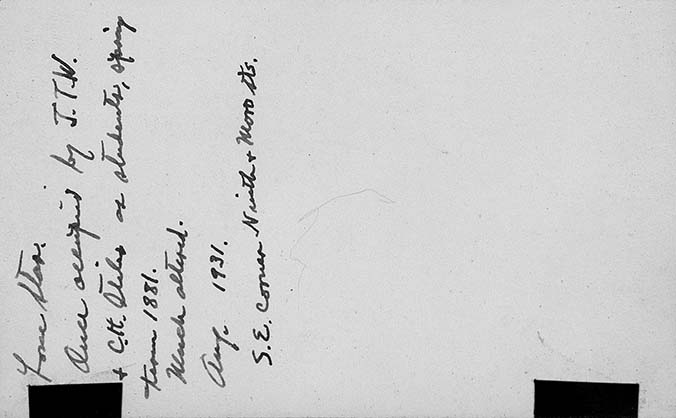 Lone Star.
Once occupied by J.T.W.
+ C.H. Stiles as students, spring
term 1881.
Much altered.
Aug. 1931.
S.E. Corner Ninth + Moro Sts.